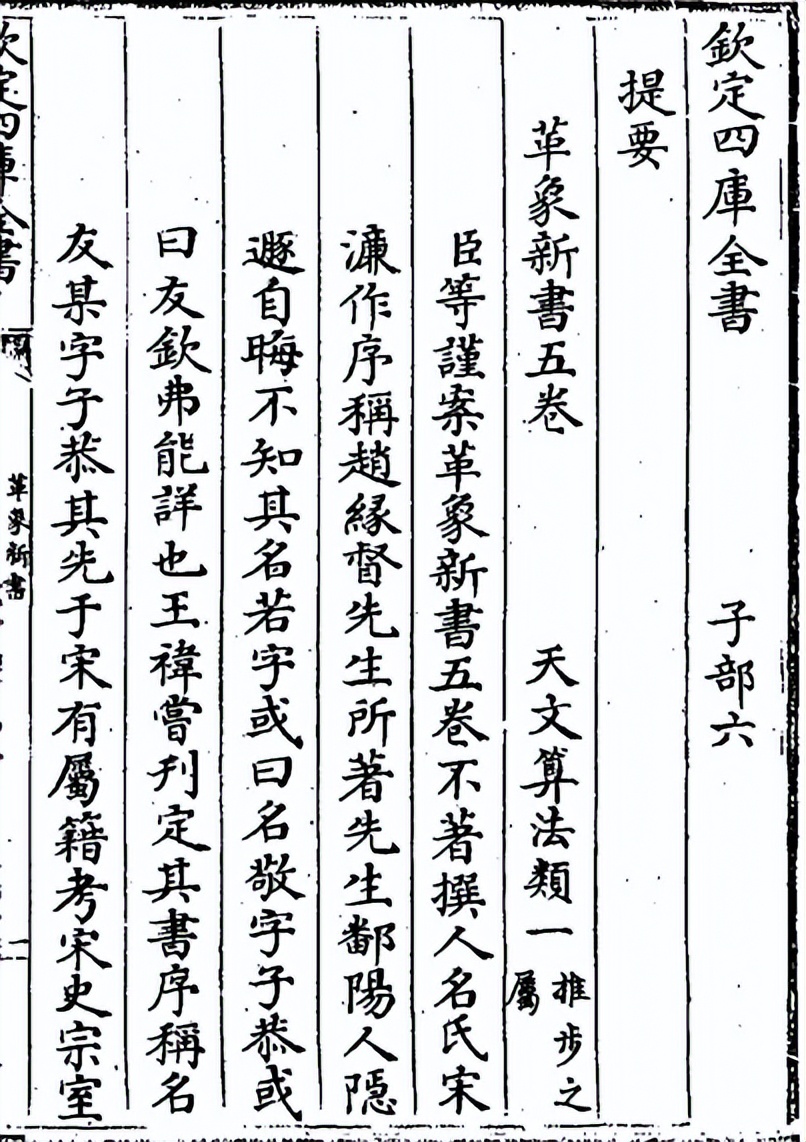 欽定四庫全書 子部六
提要
革象新書五卷 天文算法類一 推步之屬
臣等謹案革象新書五卷不著撰人名氏宋
濓作序稱趙縁督先生所著先生鄱陽人隱
遯自晦不知其名若字或曰名敬字子恭或
曰友欽弗能詳也王褘嘗刋定其書序稱名
友某字子恭其先于宋有屬籍考宋史宗室
欽定四庫全書 革象新書 一